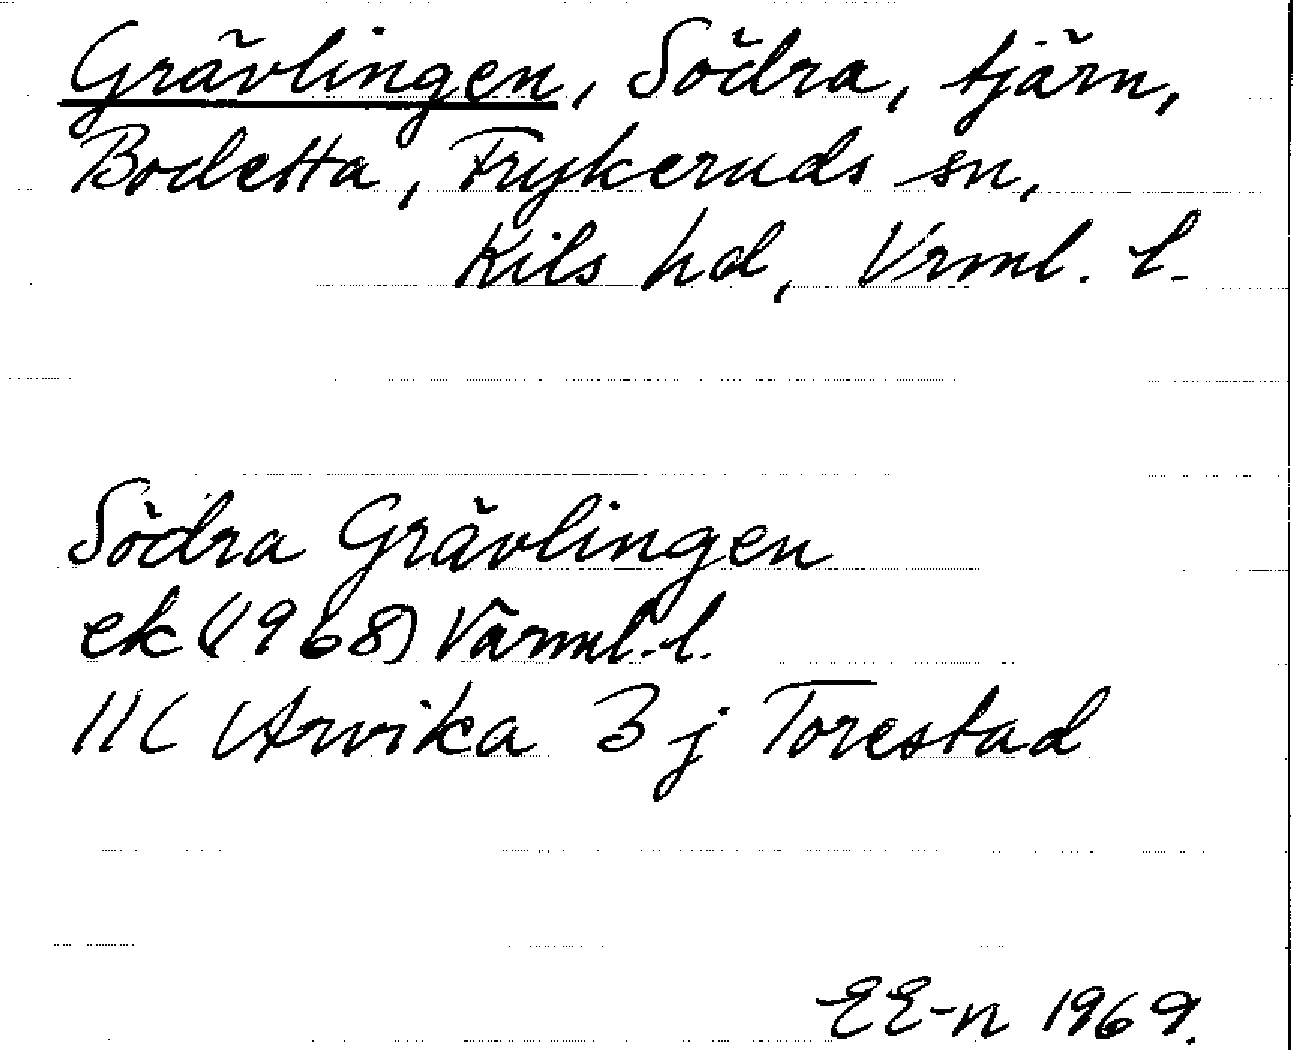 Grävlingen, Södra, tjärn,
Bodetta, Frykeruds sn,
Kils hd, Vrml. l.
Södra Grävlingen
ek (1968) Värml. l.
11C Arvika 3j Torestad
EE-n 1969.